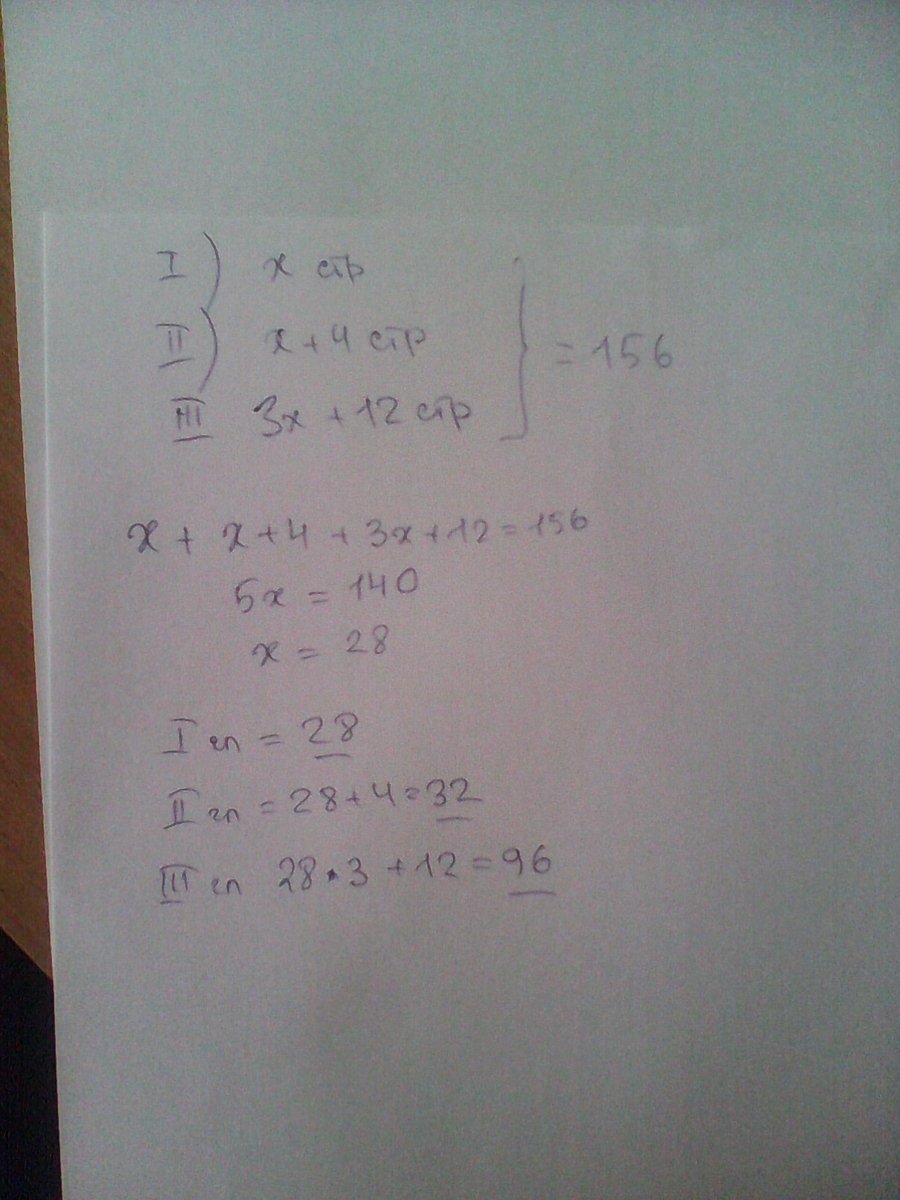 I) x стр
II) x+4 стр
III 3x+12 стр
} = 156
x + x+4 + 3x+12 = 156
5x = 140
x = 28
I гл = 28
II гл = 28+4=32
III гл 28•3 +12=96